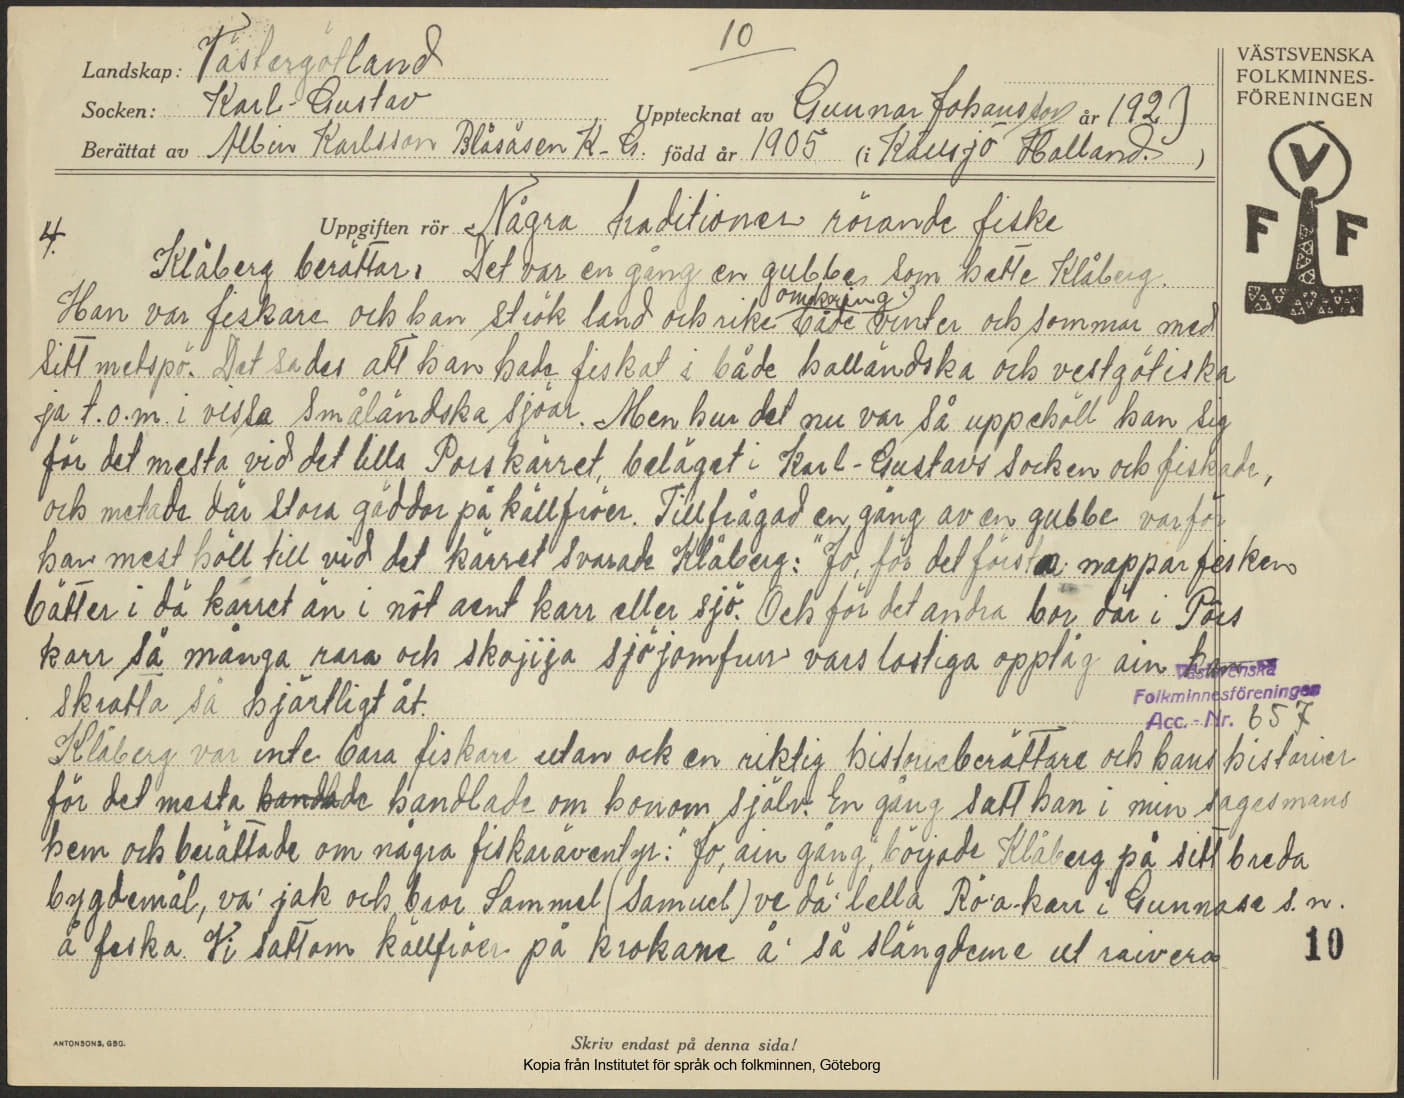 10
Landskap: Västergötland
Socken: Karl-Gustav
Upptecknat av Gunnar Johansson år 1923
Berättat av Albin Karlsson Blåsåsen K-G. född år 1905 (i Källsjö Halland.)
VÄSTSVENSKA
FOLKMINNES-
FÖRENINGEN
V
F F
4.
Uppgiften rör Några traditioner rörande fiske
Klåberg berättar. Det var en gång en gubbe som hette Klåberg.
omkring
Han var fiskare och han strök land och rike både vinter och sommar med
sitt metspö. Det sades att han hade fiskat i både halländska och vestgötiska
ja t.o.m. i vissa småländska sjöar. Men hur det nu var så uppehöll han sig
för det mesta vid det lilla Porskärret, beläget i Karl-Gustavs socken och fiskade,
och metade där stora gäddor på källfröer. Tillfrågad en gång av en gubbe varför
han mest höll till vid det kärret svarade Klåberg: "Jo, för det första nappar fisken
bätter i dä karret än i nöt aent karr eller sjö. Och för det andra bor där i Pors
karr så många rara och skojiga sjöjomfrur vars lostiga opptåg ain kan
skratta så hjärtligt åt.
Västsvenska
Folkminnesföreningen
Acc.-Nr. 657
Klåberg var inte bara fiskare utan ock en riktig historieberättare och hans historier
för det mesta handlade handlade om honom själv. En gång satt han i min sagesmans
hem och berättade om några fiskaräventyr: "Jo, ain gång", började Klåberg på sitt breda
bygdemål, va' jak och bror Sammel (Samuel) ve dä' lella Rö'a-karr i Gunnare s.n.
å feska. Vi sattom källfröer på krokane å' så slängdeme ut raivera
10
ANTONSONS, GBG.
Skriv endast på denna sida!
Kopia från Institutet för språk och folkminnen, Göteborg